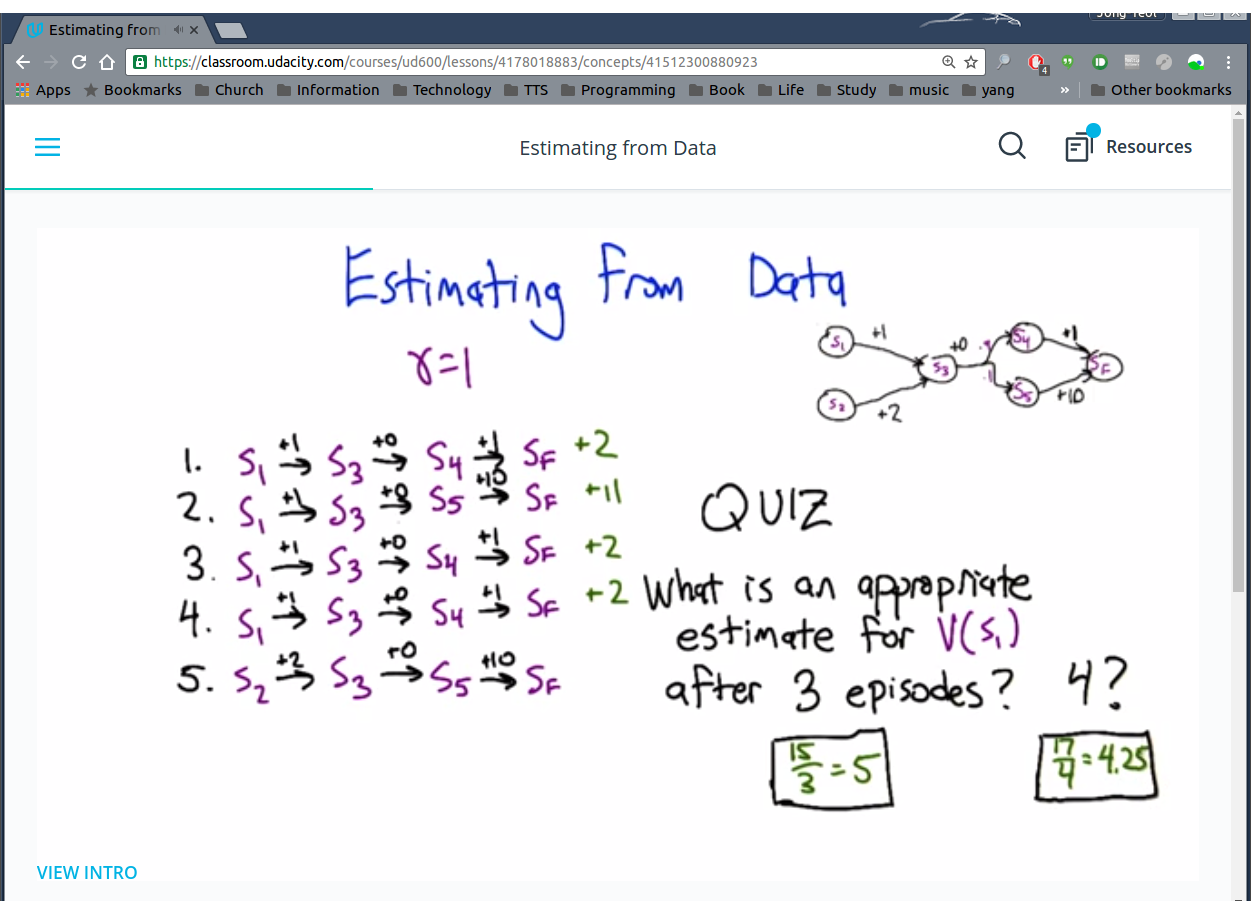 Estimating from
Jong Yeol
https://classroom.udacity.com/courses/ud600/lessons/4178018883/concepts/41512300880923
4
Apps Bookmarks Church Information Technology TTS Programming Book Life Study music yang » Other bookmarks
Estimating from Data
Resources
Estimating From Data
γ=1
S1 +1 S3 +0 .9 S4 +1 SF
S2 +2 .1 S5 +10
1. S1 +1→ S3 +0→ S4 +1→ SF +2
2. S1 +1→ S3 +0→ S5 +10→ SF +11
3. S1 +1→ S3 +0→ S4 +1→ SF +2
4. S1 +1→ S3 +0→ S4 +1→ SF +2
5. S2 +2→ S3 +0→ S5 +10→ SF
QUIZ
What is an appropriate
estimate for V(S1)
after 3 episodes? 4?
15/3 = 5
17/4 = 4.25
VIEW INTRO